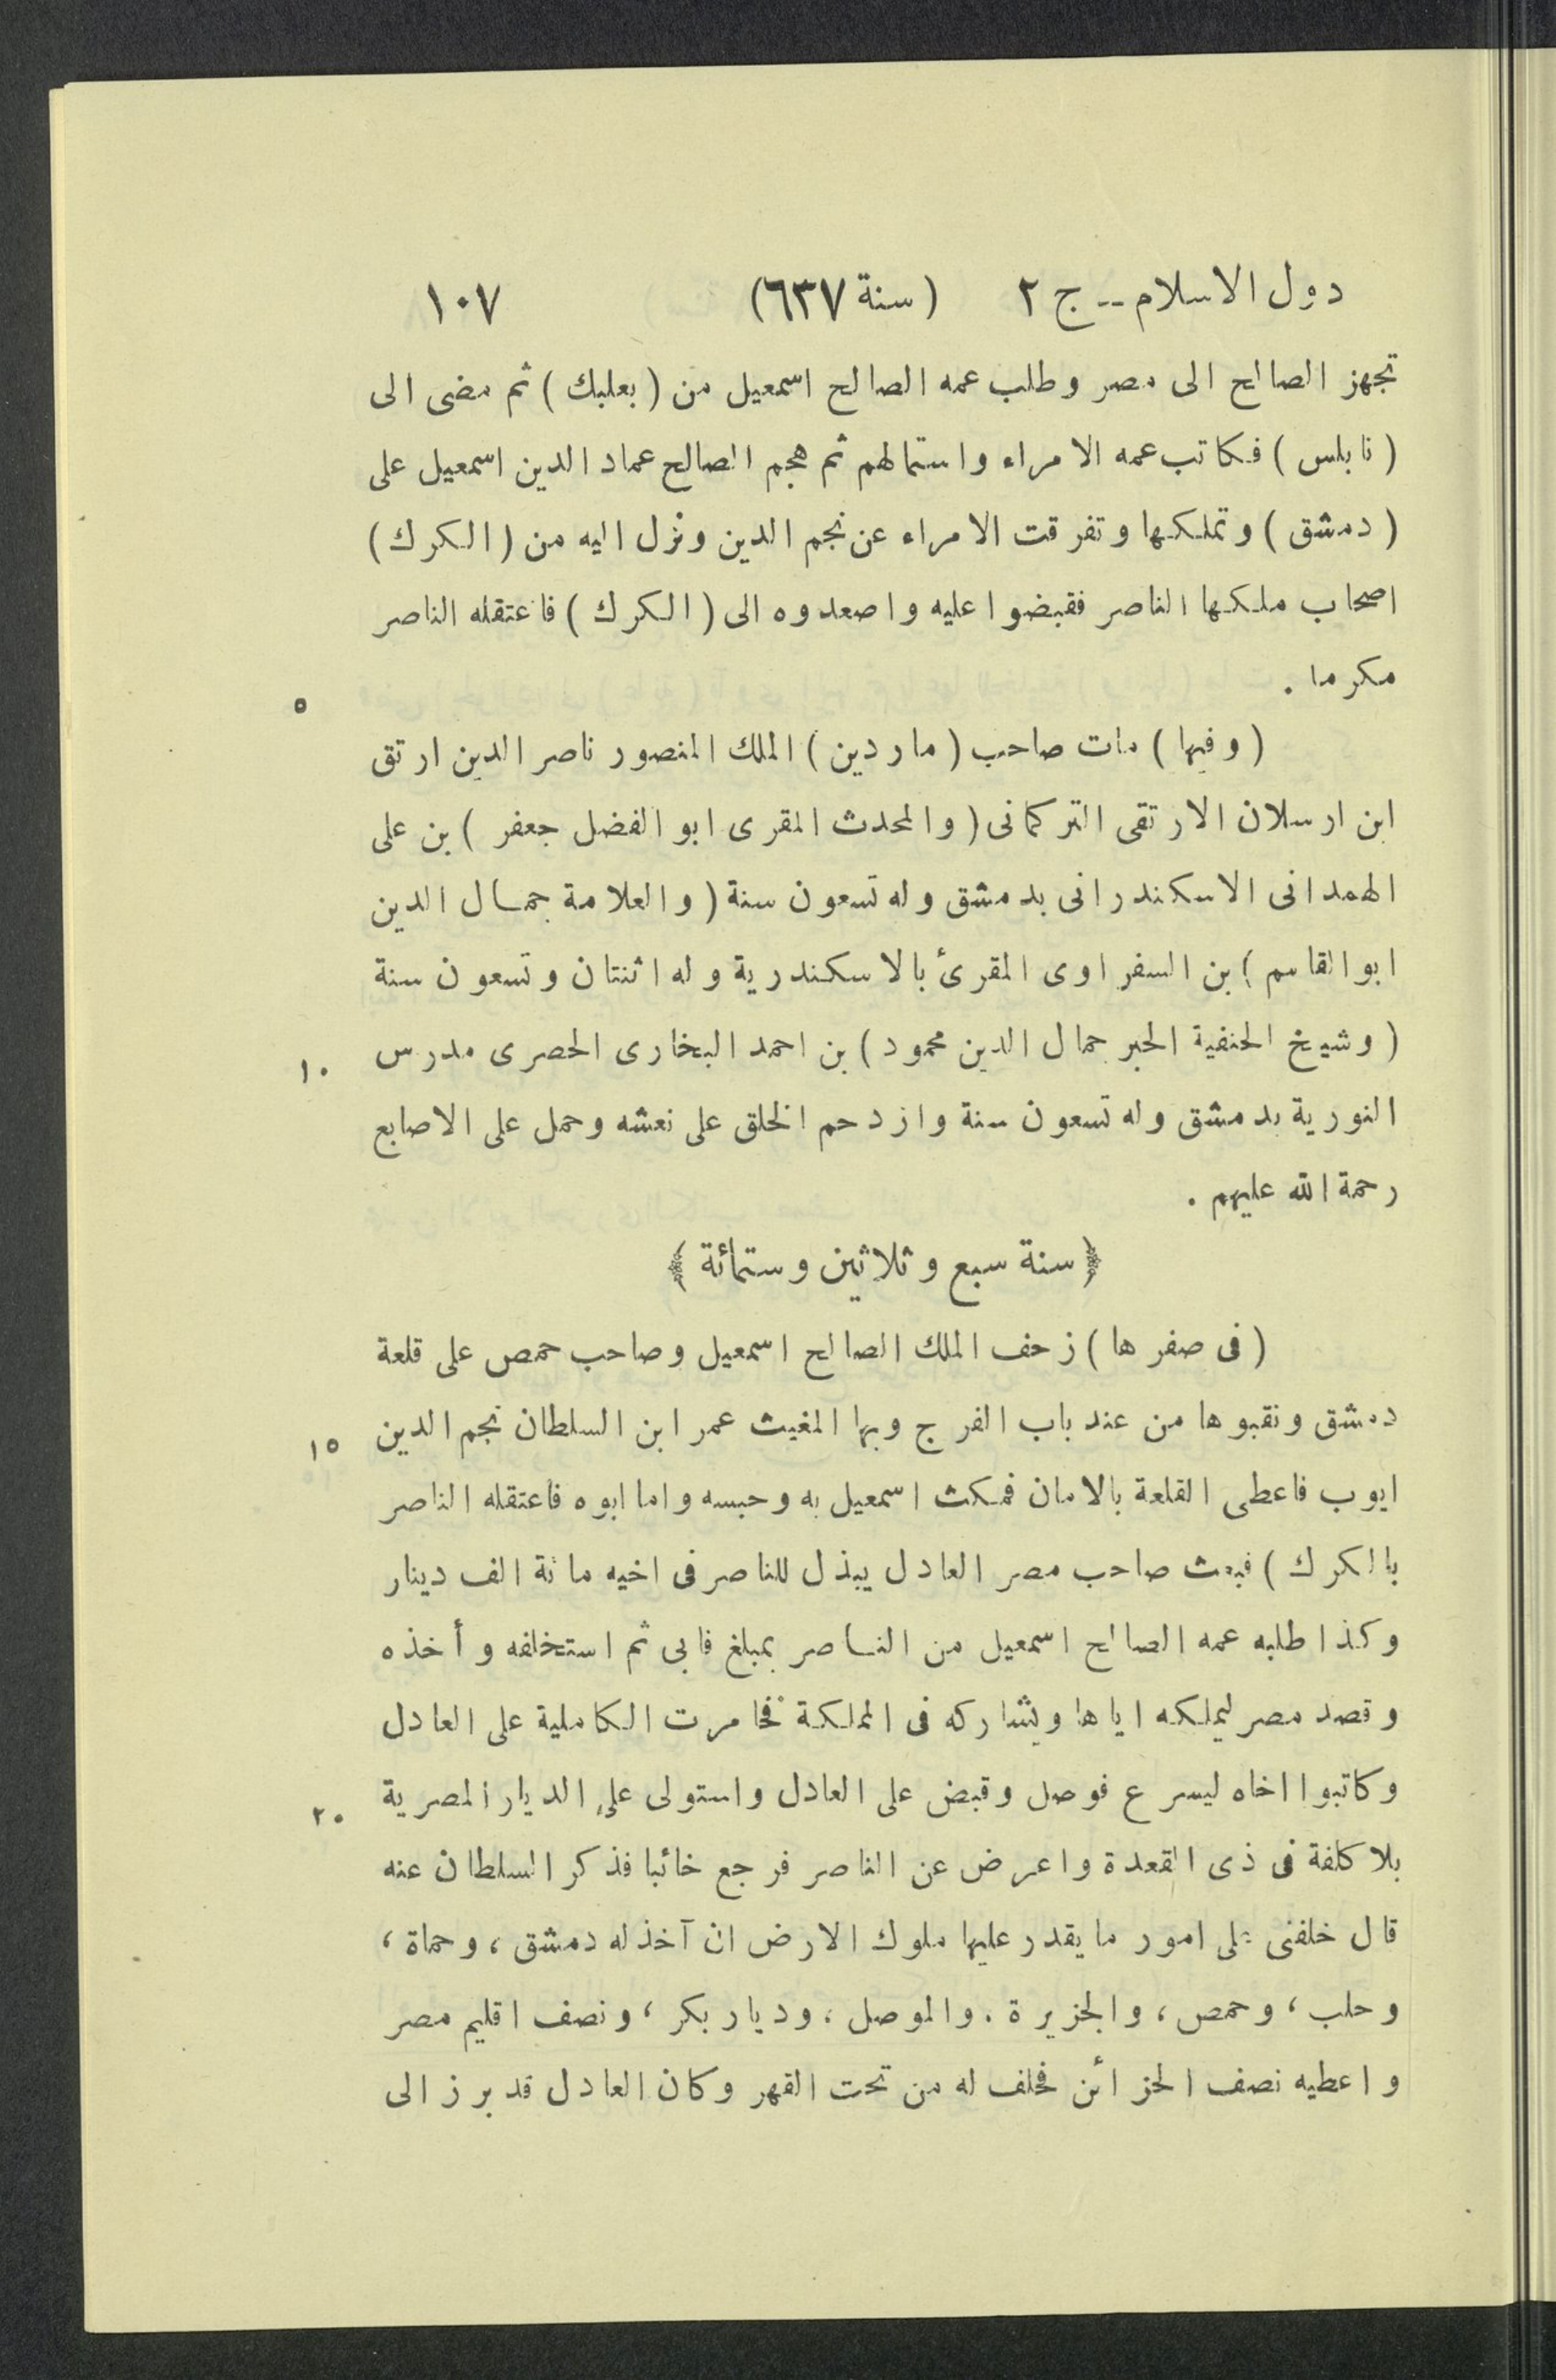 دول الاسلام -- ج ٢ (سنة ٦٣٧) ١٠٧
تجهز الصالح الى مصر وطلب عمه الصالح اسمعيل من (بعلبك) ثم مضى الى
(نابلس) فكاتب عمه الامراء واستمالهم ثم هجم الصالح عماد الدين اسمعيل على
(دمشق) وتملكها وتفرقت الامراء عن نجم الدين ونزل اليه من (الكرك)
اصحاب ملكها الناصر فقبضوا عليه واصعدوه الى (الكرك) فاعتقله الناصر
مكرما .
٥
(وفيها) مات صاحب (ماردين) الملك المنصور ناصر الدين ارتق
ابن ارسلان الارتقى التركمانى (والمحدث المقرى ابو الفضل جعفر) بن على
الهمدانى الاسكندرانى بدمشق وله تسعون سنة (والعلامة جمال الدين
ابو القاسم) بن السفراوى المقرئ بالاسكندرية وله اثنتان وتسعون سنة
(وشيخ الحنفية الحبر جمال الدين محمود) بن احمد البخارى الحصرى مدرس
١٠
النورية بدمشق وله تسعون سنة وازدحم الخلق على نعشه وحمل على الاصابع
رحمة الله عليهم .
﴿ سنة سبع وثلاثين وستمائة ﴾
(فى صفرها) زحف الملك الصالح اسمعيل وصاحب حمص على قلعة
دمشق ونقبوها من عند باب الفرج وبها المغيث عمر ابن السلطان نجم الدين
١٥
ايوب فاعطى القلعة بالامان فمكث اسمعيل به وحبسه واما ابوه فاعتقله الناصر
بالكرك) فبعث صاحب مصر العادل يبذل للناصر فى اخيه مائة الف دينار
وكذا طلبه عمه الصالح اسمعيل من الناصر بمبلغ فابى ثم استخلفه وأخذه
وقصد مصر ليملكه اياها ويشاركه فى المملكة فخامرت الكاملية على العادل
وكاتبوا اخاه ليسرع فوصل وقبض على العادل واستولى على الديار المصرية
٢٠
بلا كلفة فى ذى القعدة واعرض عن الناصر فرجع خائبا فذكر السلطان عنه
قال خلفنى على امور ما يقدر عليها ملوك الارض ان آخذ له دمشق ، وحماة ،
وحلب ، وحمص ، والجزيرة . والموصل ، وديار بكر ، ونصف اقليم مصر
واعطيه نصف الخزائن فحلف له من تحت القهر وكان العادل قد برز الى